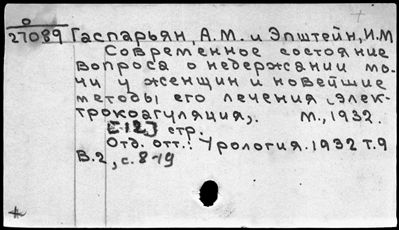 0
27089 Гаспарьян, А.М. и Эпштейн, И.М
Современное состояние
вопроса о недержании мо-
чи у женщин и новейшие
методы его лечения (элек-
трокоагуляция). М., 1932.
[12] стр.
Отд. отт.: Урология. 1932 т.9
В.2, с. 8-19